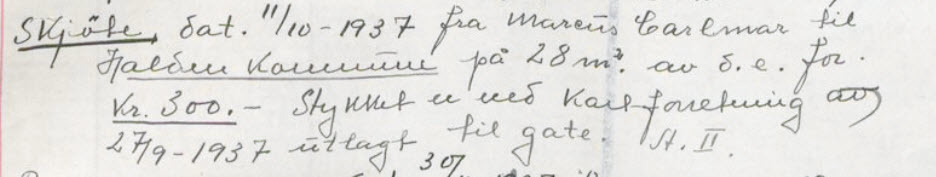 Skjöte, dat. 11/10-1937 fra Marcus Carlmar til
Halden Kommune på 28 m². av d. e. for.
Kr. 300.- Stykket er ved Kartforretning av
27/9-1937 utlagt til gate. A. II.
30/